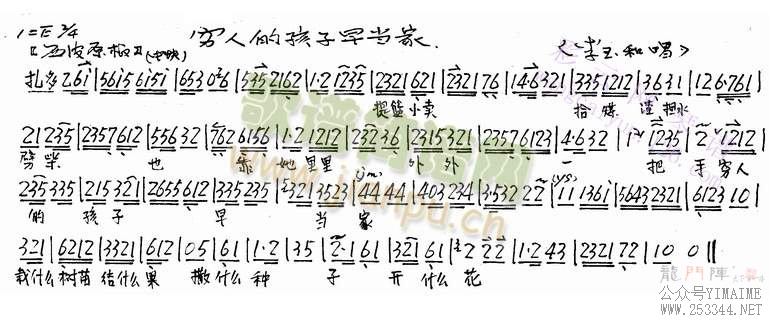 1=E 2/4 穷人的孩子早当家.
【西皮原板】(中快) <李玉和唱>
扎多 2 6i | 56i5 6i5i | 653 0²6 | 535 2162 | 1·2 1235 | 2321 621 | 2321 76 | 14·6 321 | 335 1212 | 3631 | 12 6·761 |
提篮小卖 拾煤渣担水
212 35 | 2357 612 | 556 32 | 762 6156 | 1·2 1212 | 232 36 | 2315 321 | 2357 6123 | 4·6 32 | 1 1235 | 2 1212 |
劈柴 也 靠她里里 外外 一 把手穷人
235 335 | 215 321 | 2655 612 | 335 235 | 2321 3523 | 44 44 | 403 234 | 3·532 22 | 11 136i | 5643 2321 | 6123 10 |
的 孩子 早 当 家
321 | 6212 | 3321 | 612 | 05 | 61 | 1·2 | 35 | 2·1 61 | 321 61 | 2 22 | 1·2 43 | 2321 72 | 10 0 ||
栽什么树苗 结什么果 撒什么种 子 开什么花
歌谱简谱网
www.jianpu.cn
龍門陣
公众号YIMAIME
www.253344.NET